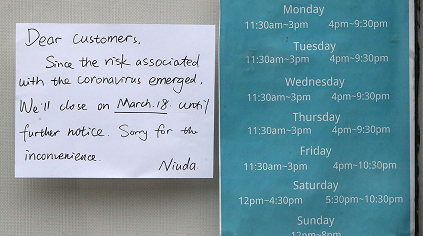 Dear Customers,
Since the risk associated
with the coronavirus emerged,
We'll close on March.18 until
further notice. Sorry for the
inconvenience.
Niuda
Monday
11:30am~3pm 4pm~9:30pm
Tuesday
11:30am~3pm 4pm~9:30pm
Wednesday
11:30am~3pm 4pm~9:30pm
Thursday
11:30am~3pm 4pm~9:30pm
Friday
11:30am~3pm 4pm~10:30pm
Saturday
12pm~4:30pm 5:30pm~10:30pm
Sunday
12pm~8pm